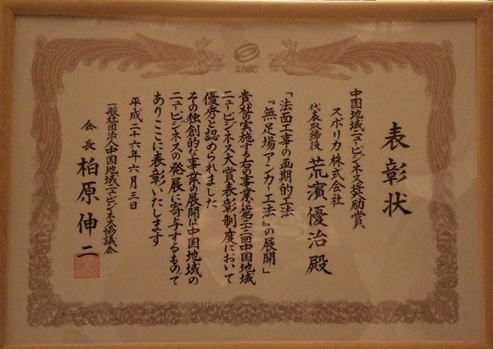 表彰状
中国地域ニュービジネス奨励賞
スポリカ株式会社
代表取締役 荒濱優治 殿
「法面工事の画期的工法
『無足場アンカー工法』の展開」
貴社の実施する右の事業は第二十二回中国地域
ニュービジネス大賞表彰制度において
優秀と認められました
その独創的な事業の展開は中国地域の
ニュービジネスの発展に寄与するもので
ありここに表彰いたします
平成二十六年六月三日
一般社団法人中国地域ニュービジネス協議会
会長 柏原伸二